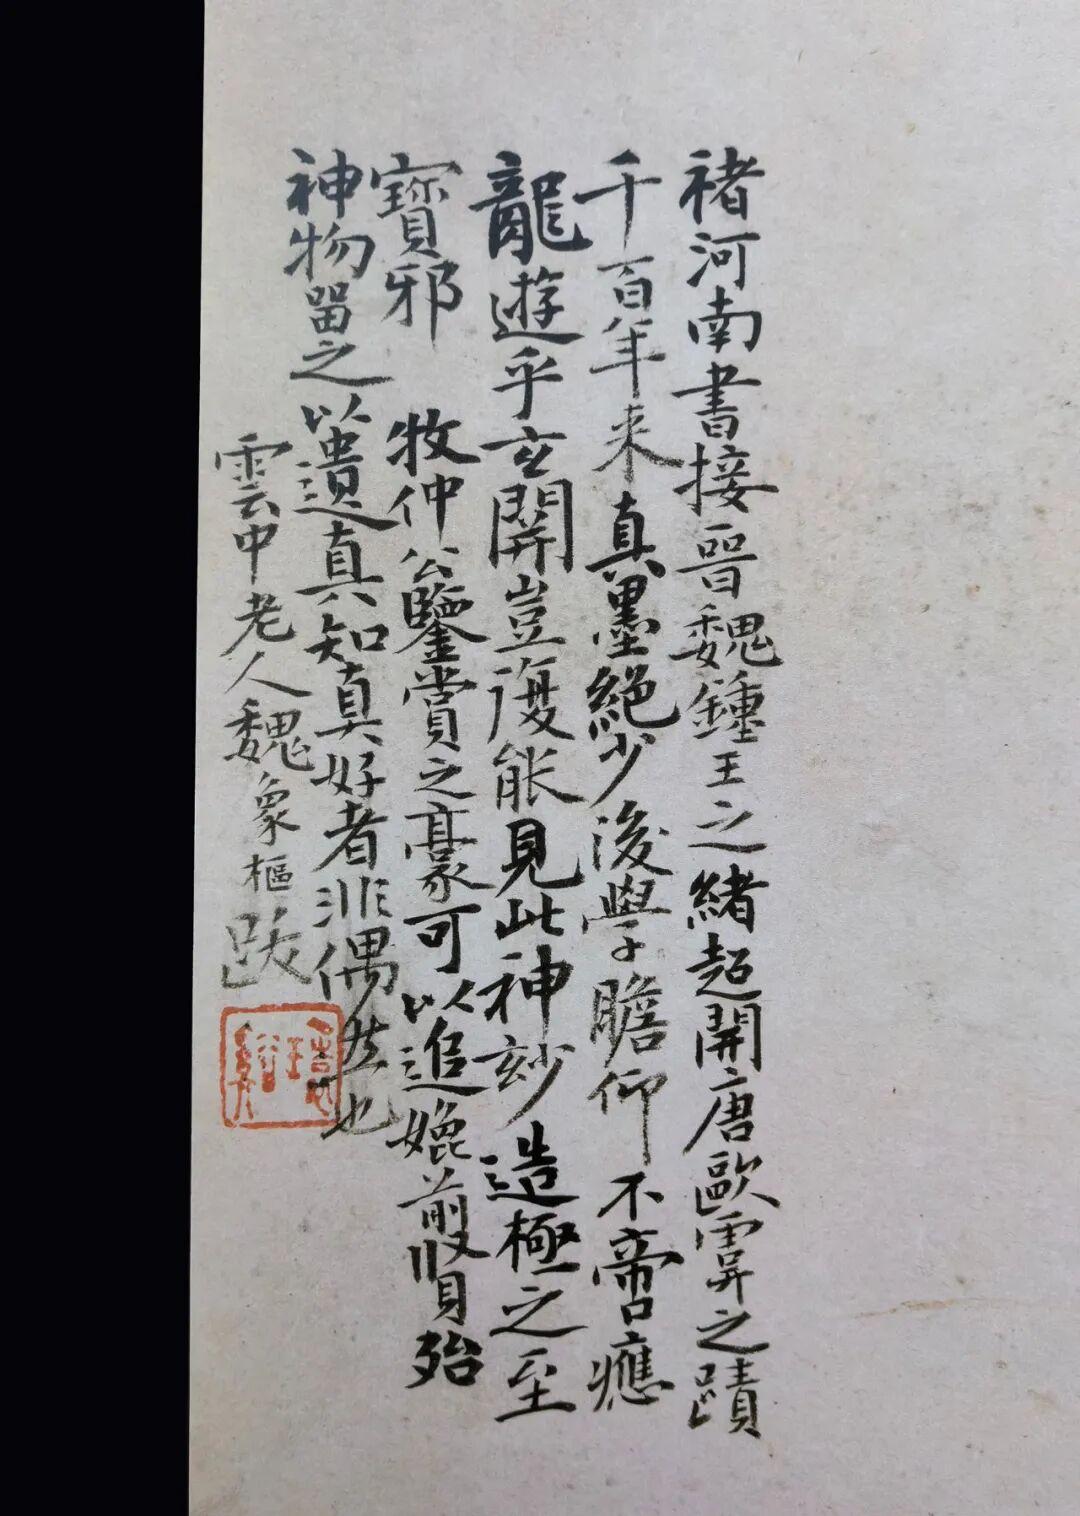 褚河南書接晉魏鍾王之緒超開唐歐虞之蹟
千百年来真墨絕少後學瞻仰不啻應
龍遊乎玄開豈復能見此神玅造極之至
寶邪牧仲公鑒賞之豪可以追媲前賢殆
神物畱之以遺真知真好者非偶然也
雲中老人魏象樞跋